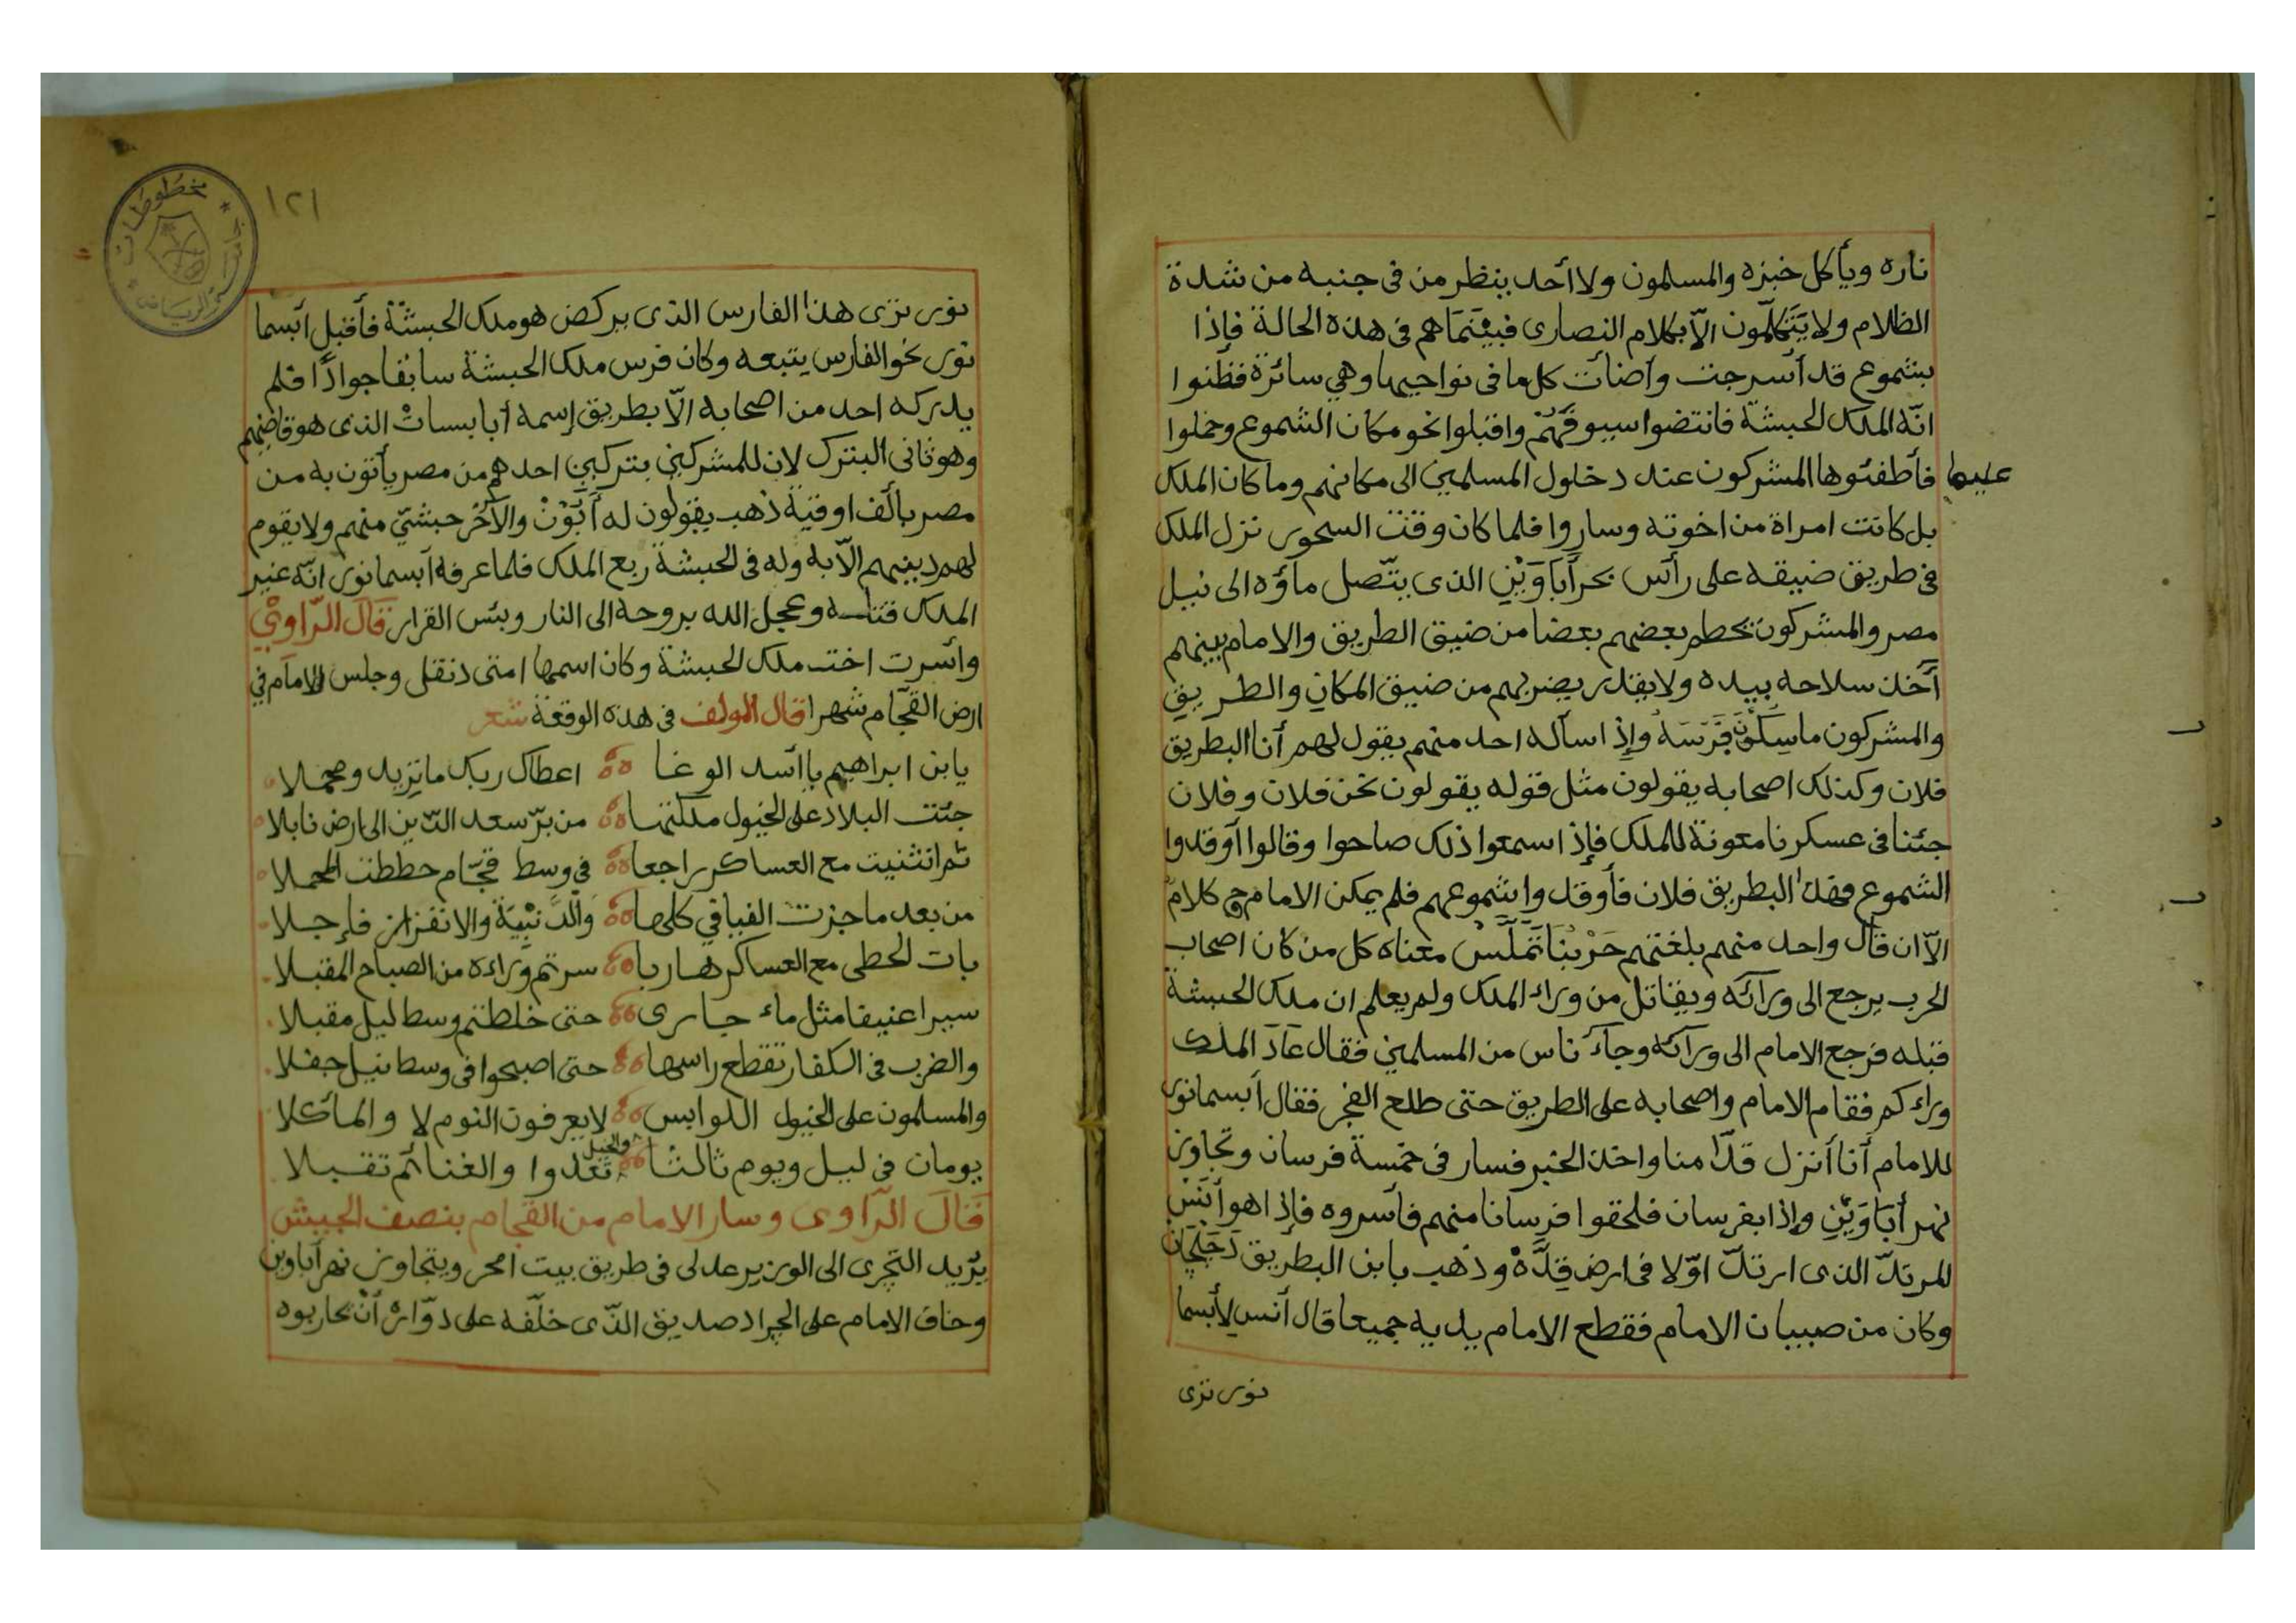 ناره ويأكل خبزه والمسلمون ولا أحد ينظر من في جنبه من شدة
الظلام ولا يَتَكَلّمون الّا بكلام النصارى فبيْنَمَا هم في هذه الحالة فإذا
بشموع قد أسرجت وأضأت كل ما في نواحيها وهي سائرة فظنوا
انّه الملك الحبشة فانتضوا سيوفهُمْ واقبلوا نحو مكان الشموع وحملوا
عليها فأطفئوها المشركون عند دخلول المسلمين الى مكانهم وما كان الملك
بل كانت امراة من اخوته وساروا فلما كان وقت السحور نزل الملك
في طريق ضيقه على رأس بحر أَبَاوَيْنِ الذى يتّصل ماؤه الى نيل
مصر والمشركون يحطم بعضهم بعضا من ضيق الطريق والامام بينهم
آخذ سلاحه بيده ولا يقدر يضربهم من ضيق المكان والطريق
والمشركون ماسِكُونَ فَرَسَهُ وإذا سأله احد منهم يقول لهم أنا البطريق
فلان وكذلك اصحابه يقولون مثل قوله يقولون نحن فلان وفلان
جئنا في عسكرنا معونة للملك فإذا سمعوا ذلك صاحوا وقالوا أوقدوا
الشموع فهذا البطريق فلان فأوقدوا شموعهم فلم يمكن الامام كلام
الّا ان قال واحد منهم بلغتهم حَرْبْنَا تَمَلَّسْ معناه كل من كان اصحاب
الحرب يرجع الى ورآئه ويقاتل من وراء الملك ولم يعلم ان ملك الحبشة
قبله فرجع الامام الى ورآئه وجآء ناس من المسلمين فقال عَادَ الملك
وراءكم فقام الامام واصحابه على الطريق حتى طلع الفجر فقال أبسمانور
للامام أنا أنزل قدّامنا واخذ الخبر فسار في خمسة فرسان وتجاوز
نهر أَبَاوَيْنِ وإذا بفرسان فلحقوا فرسانا منهم فأسروه فإذا هو أَنَسْ
المرتدّ الذى ارتدّ اوّلا في ارض قِدَّهْ وذهب بابن البطريق دَجَلْجَان
وكان من صبيان الامام فقطع الامام يديه جميعا قال أنس لأبسما
نور ترى
١٢١
نور ترى هذا الفارس الذى يركض هو ملك الحبشة فأقبل أبسما
نور نحو الفارس يتبعه وكان فرس ملك الحبشة سابقا جوادًا فلم
يدركه احد من اصحابه الّا بطريق إسمه أبا بسات الذى هو قاضيهم
وهو ثانى البترك لان للمشركين بتركين احدهم من مصر يأتون به من
مصر بألف اوقية ذهب يقولون له أَبُوْنْ والآخر حبشيّ منهم ولا يقوم
لهم دينهم الّا به وله في الحبشة ربع الملك فلما عرفه أبسمانور انّه غير
الملك قتله وعجل الله بروحه الى النار وبئس القرار قال الرّاوي
وأسرت اخت ملك الحبشة وكان اسمها امتى دنقل وجلس الامام في
ارض القجّام شهرا قال المولف في هذه الوقعة شعر
يابن ابراهيم يا أسد الوغا اعطاك ربك ما تريد ومجملا
جئت البلاد على الخيول ملكتها من برّ سعد الدّين الى ارض نابلا
ثم انثنيت مع العساكر راجعا في وسط قجّام حططت المحملا
من بعد ما جزت الفيافي كلها وَالدَّنْبِيَة والانفراز فارجلا
بات الحطى مع العساكر هاربا سرتم وراءه من الصباح المقبلا
سيرا عنيفا مثل ماء جارى حتى خلطتم وسط ليل مقبلا
والضرب في الكفار تقطع راسها حتى اصبحوا في وسط نيل جفلا
والمسلمون على الخيول اللوابس لا يعرفون النوم لا والمأكلا
يومان في ليل ويوم ثالثا والخيل تعدوا والغنائم تقبلا
قال الرّاوى وسار الامام من القجام بنصف الجيش
يرّيد التّجرى الى الوزير عدلى في طريق بيت امحر ويتجاوز نهر أباوين
وخاف الامام على الجراد صديق الذّى خلّفه على دوّاره أنْ يحاربوه